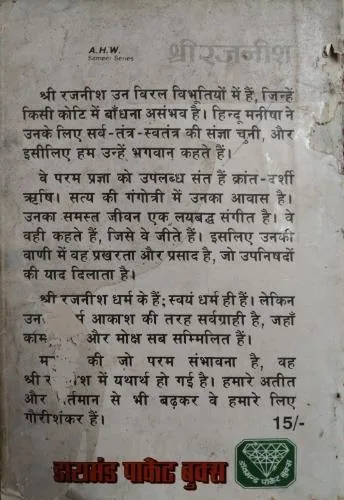 A.H.W.
Sameer Series
श्री रजनीश
श्री रजनीश उन विरल विभूतियों में हैं, जिन्हें
किसी कोटि में बाँधना असंभव है। हिन्दू मनीषा ने
उनके लिए सर्व-तंत्र-स्वतंत्र की संज्ञा चुनी, और
इसीलिए हम उन्हें भगवान कहते हैं।
वे परम प्रज्ञा को उपलब्ध संत हैं क्रांत-दर्शी
ऋषि। सत्य की गंगोत्री में उनका आवास है।
उनका समस्त जीवन एक लयबद्ध संगीत है। वे
वही कहते हैं, जिसे वे जीते हैं। इसलिए उनकी
वाणी में वह प्रखरता और प्रसाद है, जो उपनिषदों
की याद दिलाता है।
श्री रजनीश धर्म के हैं; स्वयं धर्म ही हैं। लेकिन
आकाश की तरह सर्वग्राही है, जहाँ
काम और मोक्ष सब सम्मिलित हैं।
की जो परम संभावना है, वह
श्री में यथार्थ हो गई है। हमारे अतीत
और से भी बढ़कर वे हमारे लिए
गौरीशंकर हैं।
15/-
डायमंड पाकेट बुक्स
डायमंड पाकेट बुक्स